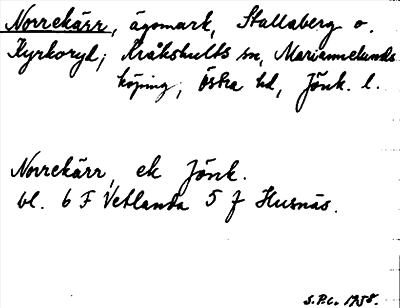 Norrekärr, ägomark, Stallaberg o.
Kyrkoryd; Kråkshults sn, Mariannelunds
köping; Östra hd, Jönk. l.
Norrekärr, ek Jönk.
bl. 6 F Vetlanda 5 f Husnäs.
S.P.C. 1958.